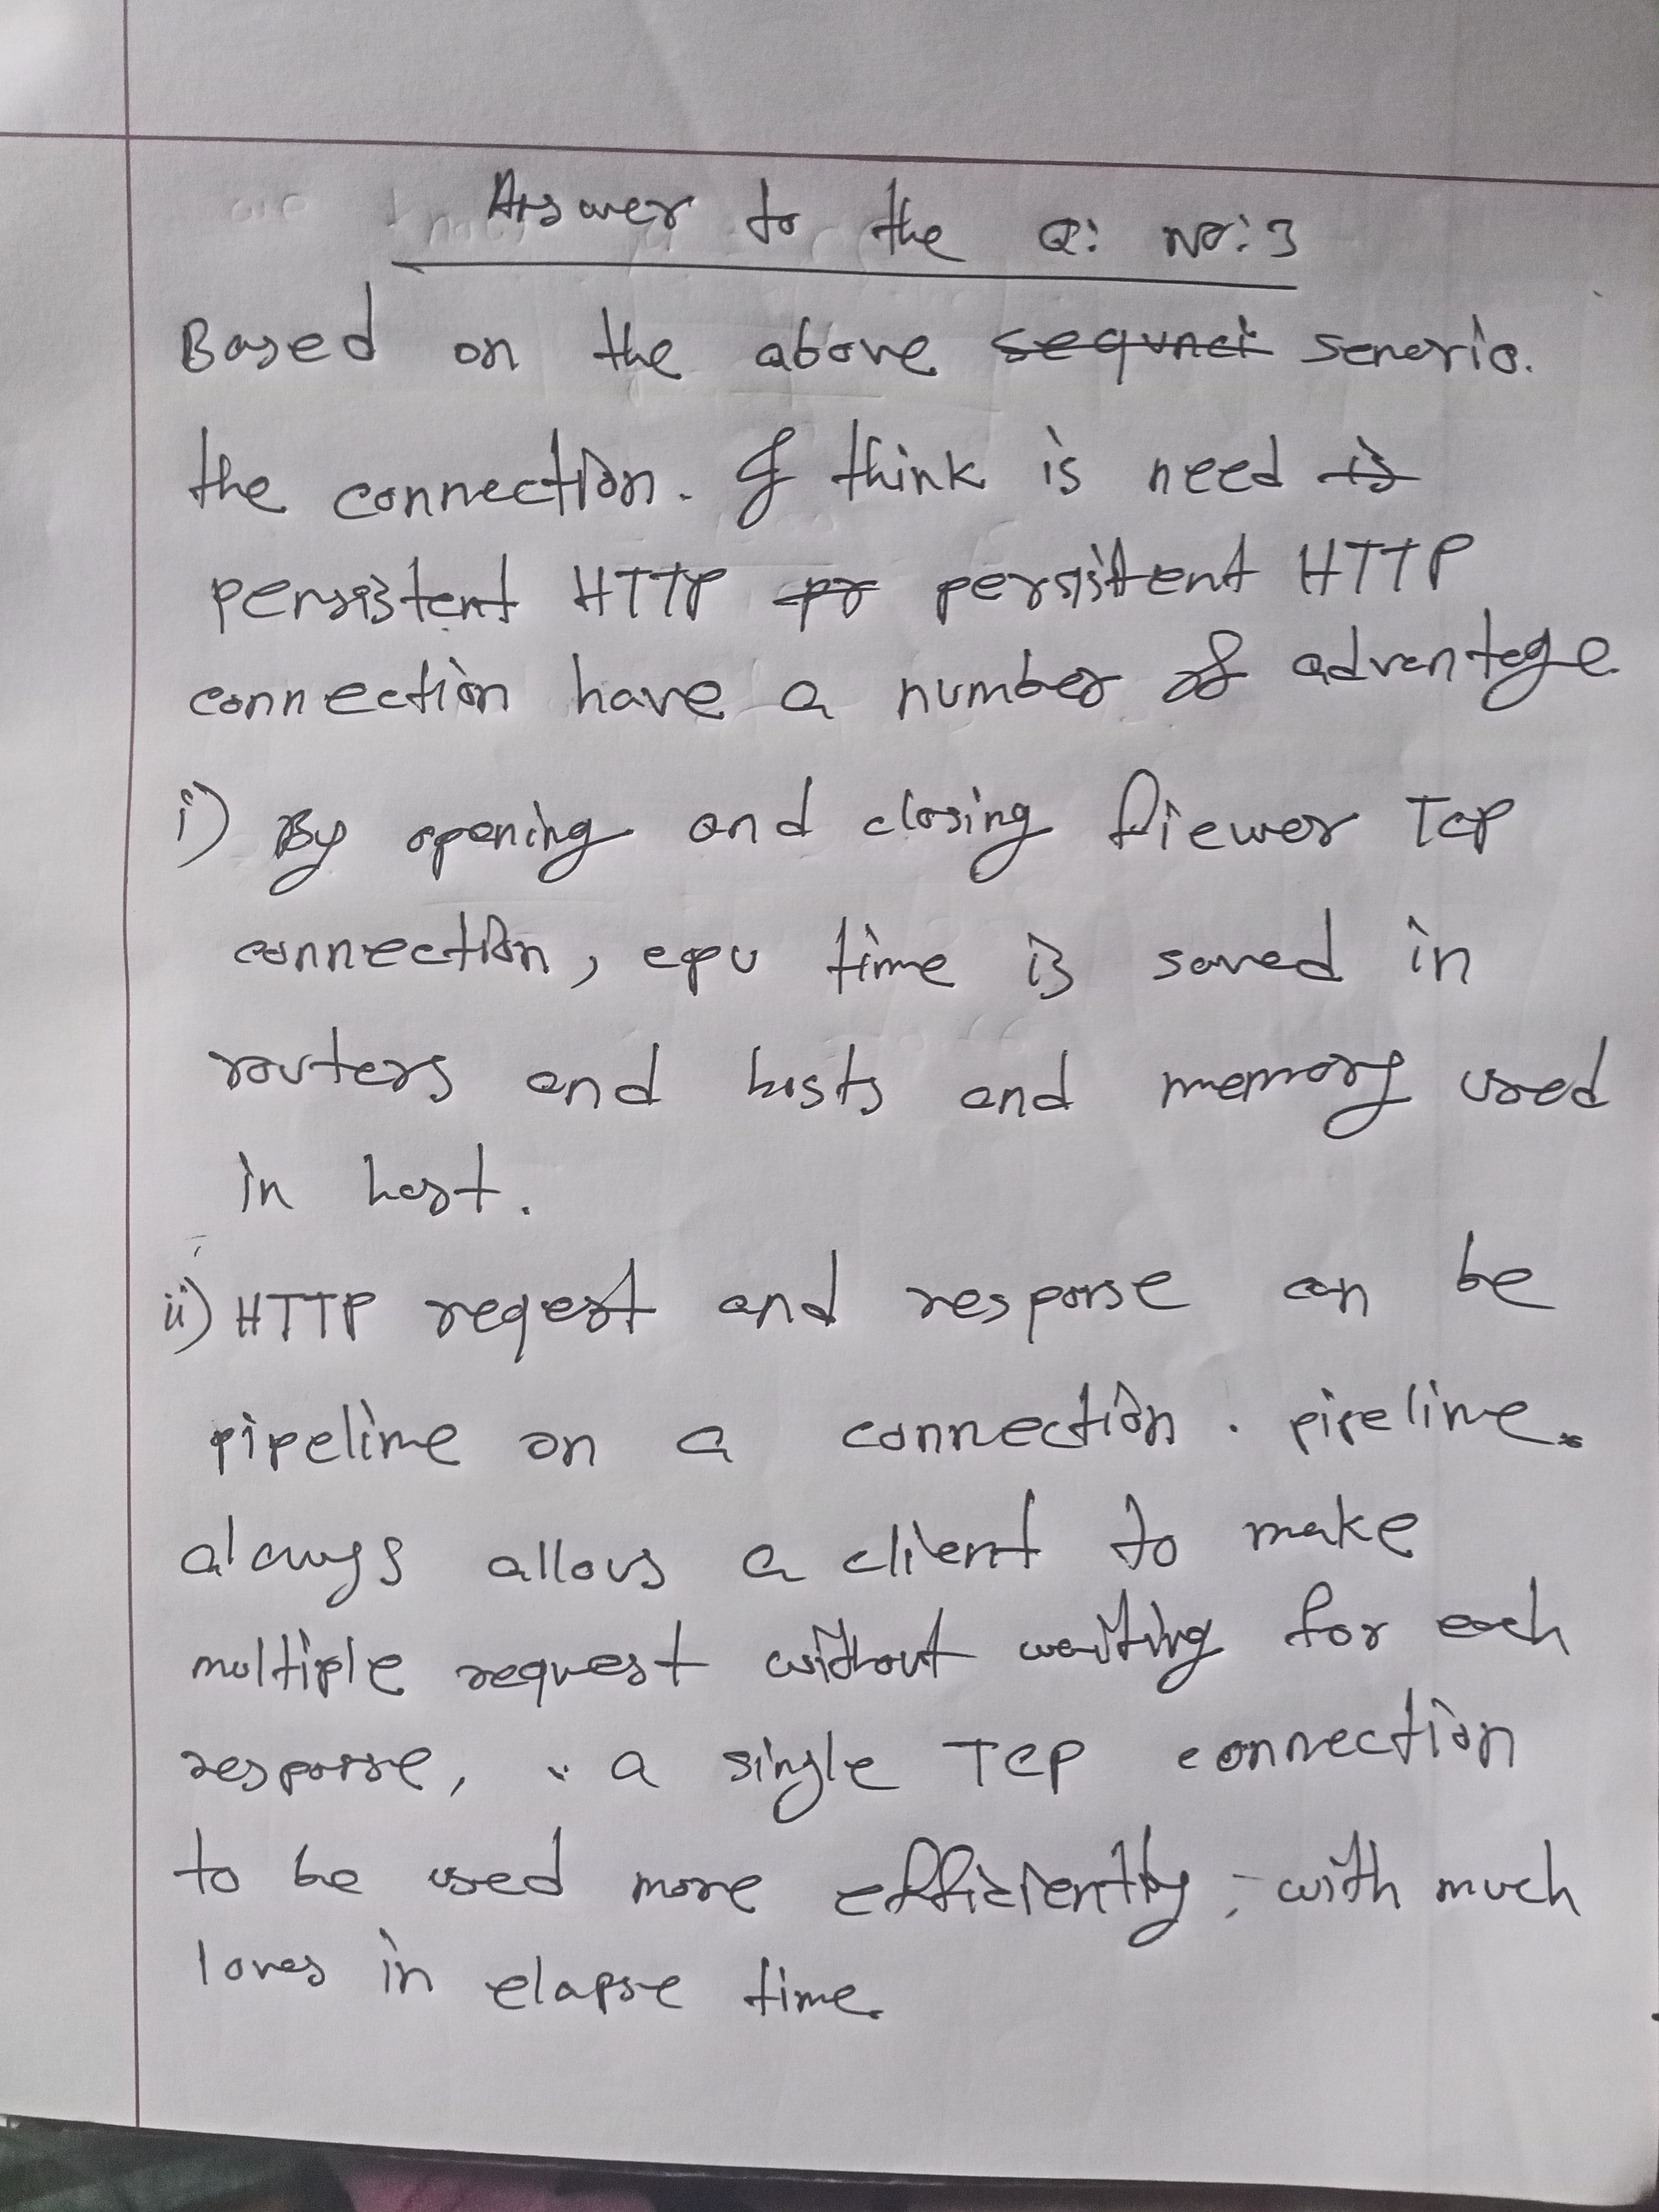 Answer to the Q: No: 3
Based on the above sequnci senerio.
the connection. I think is need is
persistent HTTP pr persistent HTTP
connection have a number of adventege
i) By opening and closing fiewer TCP
connection, cpu time is saved in
routers and hosts and memory used
in host.
ii) HTTP reqest and response can be
pipeline on a connection. pipeline.
always allows a client to make
multiple request without waiting for each
response, a single TCP connection
to be used more efficiently, with much
lowes in elapse time.